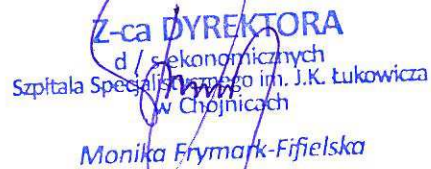 Z-ca DYREKTORA
d/s ekonomicznych
Szpitala Specjalistycznego im. J.K. Łukowicza
w Chojnicach
Monika Frymark-Fifielska